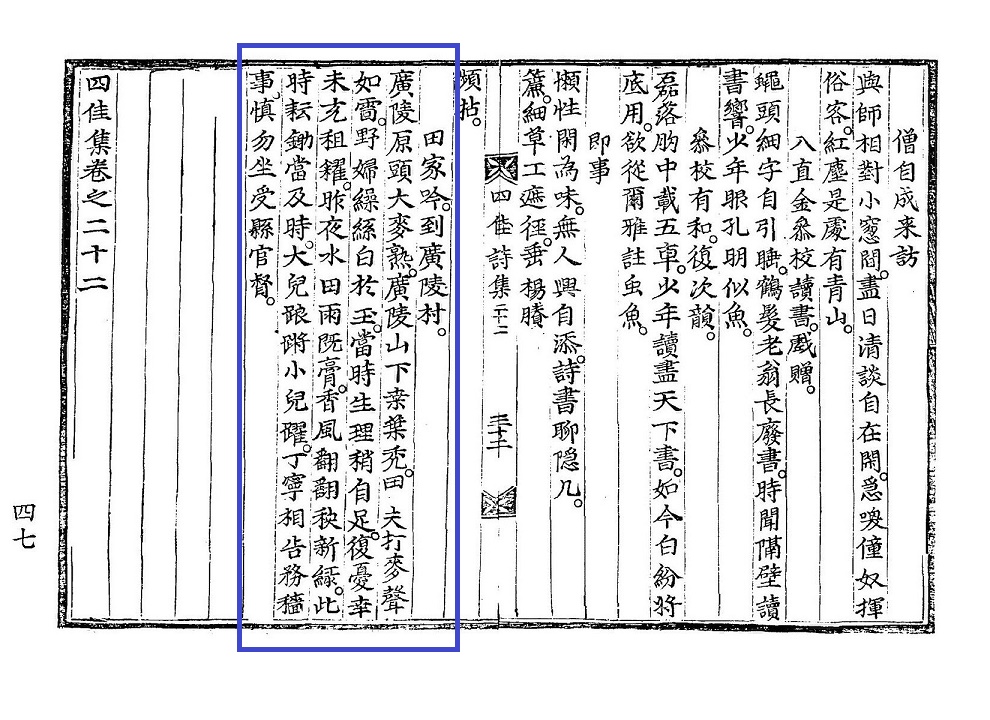 僧自成来訪
與師相對小窓間。盡日清談自在閑。急喚僮奴揮
俗客。紅塵是處有青山。
八直金叅校讀書。戱贈。
蠅頭細字自引睫。鶴髮老翁長廢書。時聞隔壁讀
書響。少年眼孔明似魚。
叅校有和。復次韻。
磊落胷中載五車。少年讀盡天下書。如今白紛將
底用。欲從爾雅註虫魚。
即事
懶性閑為味。無人興自添。詩書聊隠几。
簾。細草工遮徑。垂楊賸
四佳詩集二十二 三十二
頻拈。
田家吟。到廣陵村。
廣陵原頭大麥熟。廣陵山下桒葉禿。田夫打麥聲
如雷。野婦繰絲白於玉。當時生理稍自足。復憂幸
未充租糴。昨夜水田雨既膏。香風翻翻秧新綠。此
時耘鋤當及時。大兒踉蹡小兒躍。丁寧相告務穡
事。慎勿坐受縣官督。
四佳集卷之二十二
四七